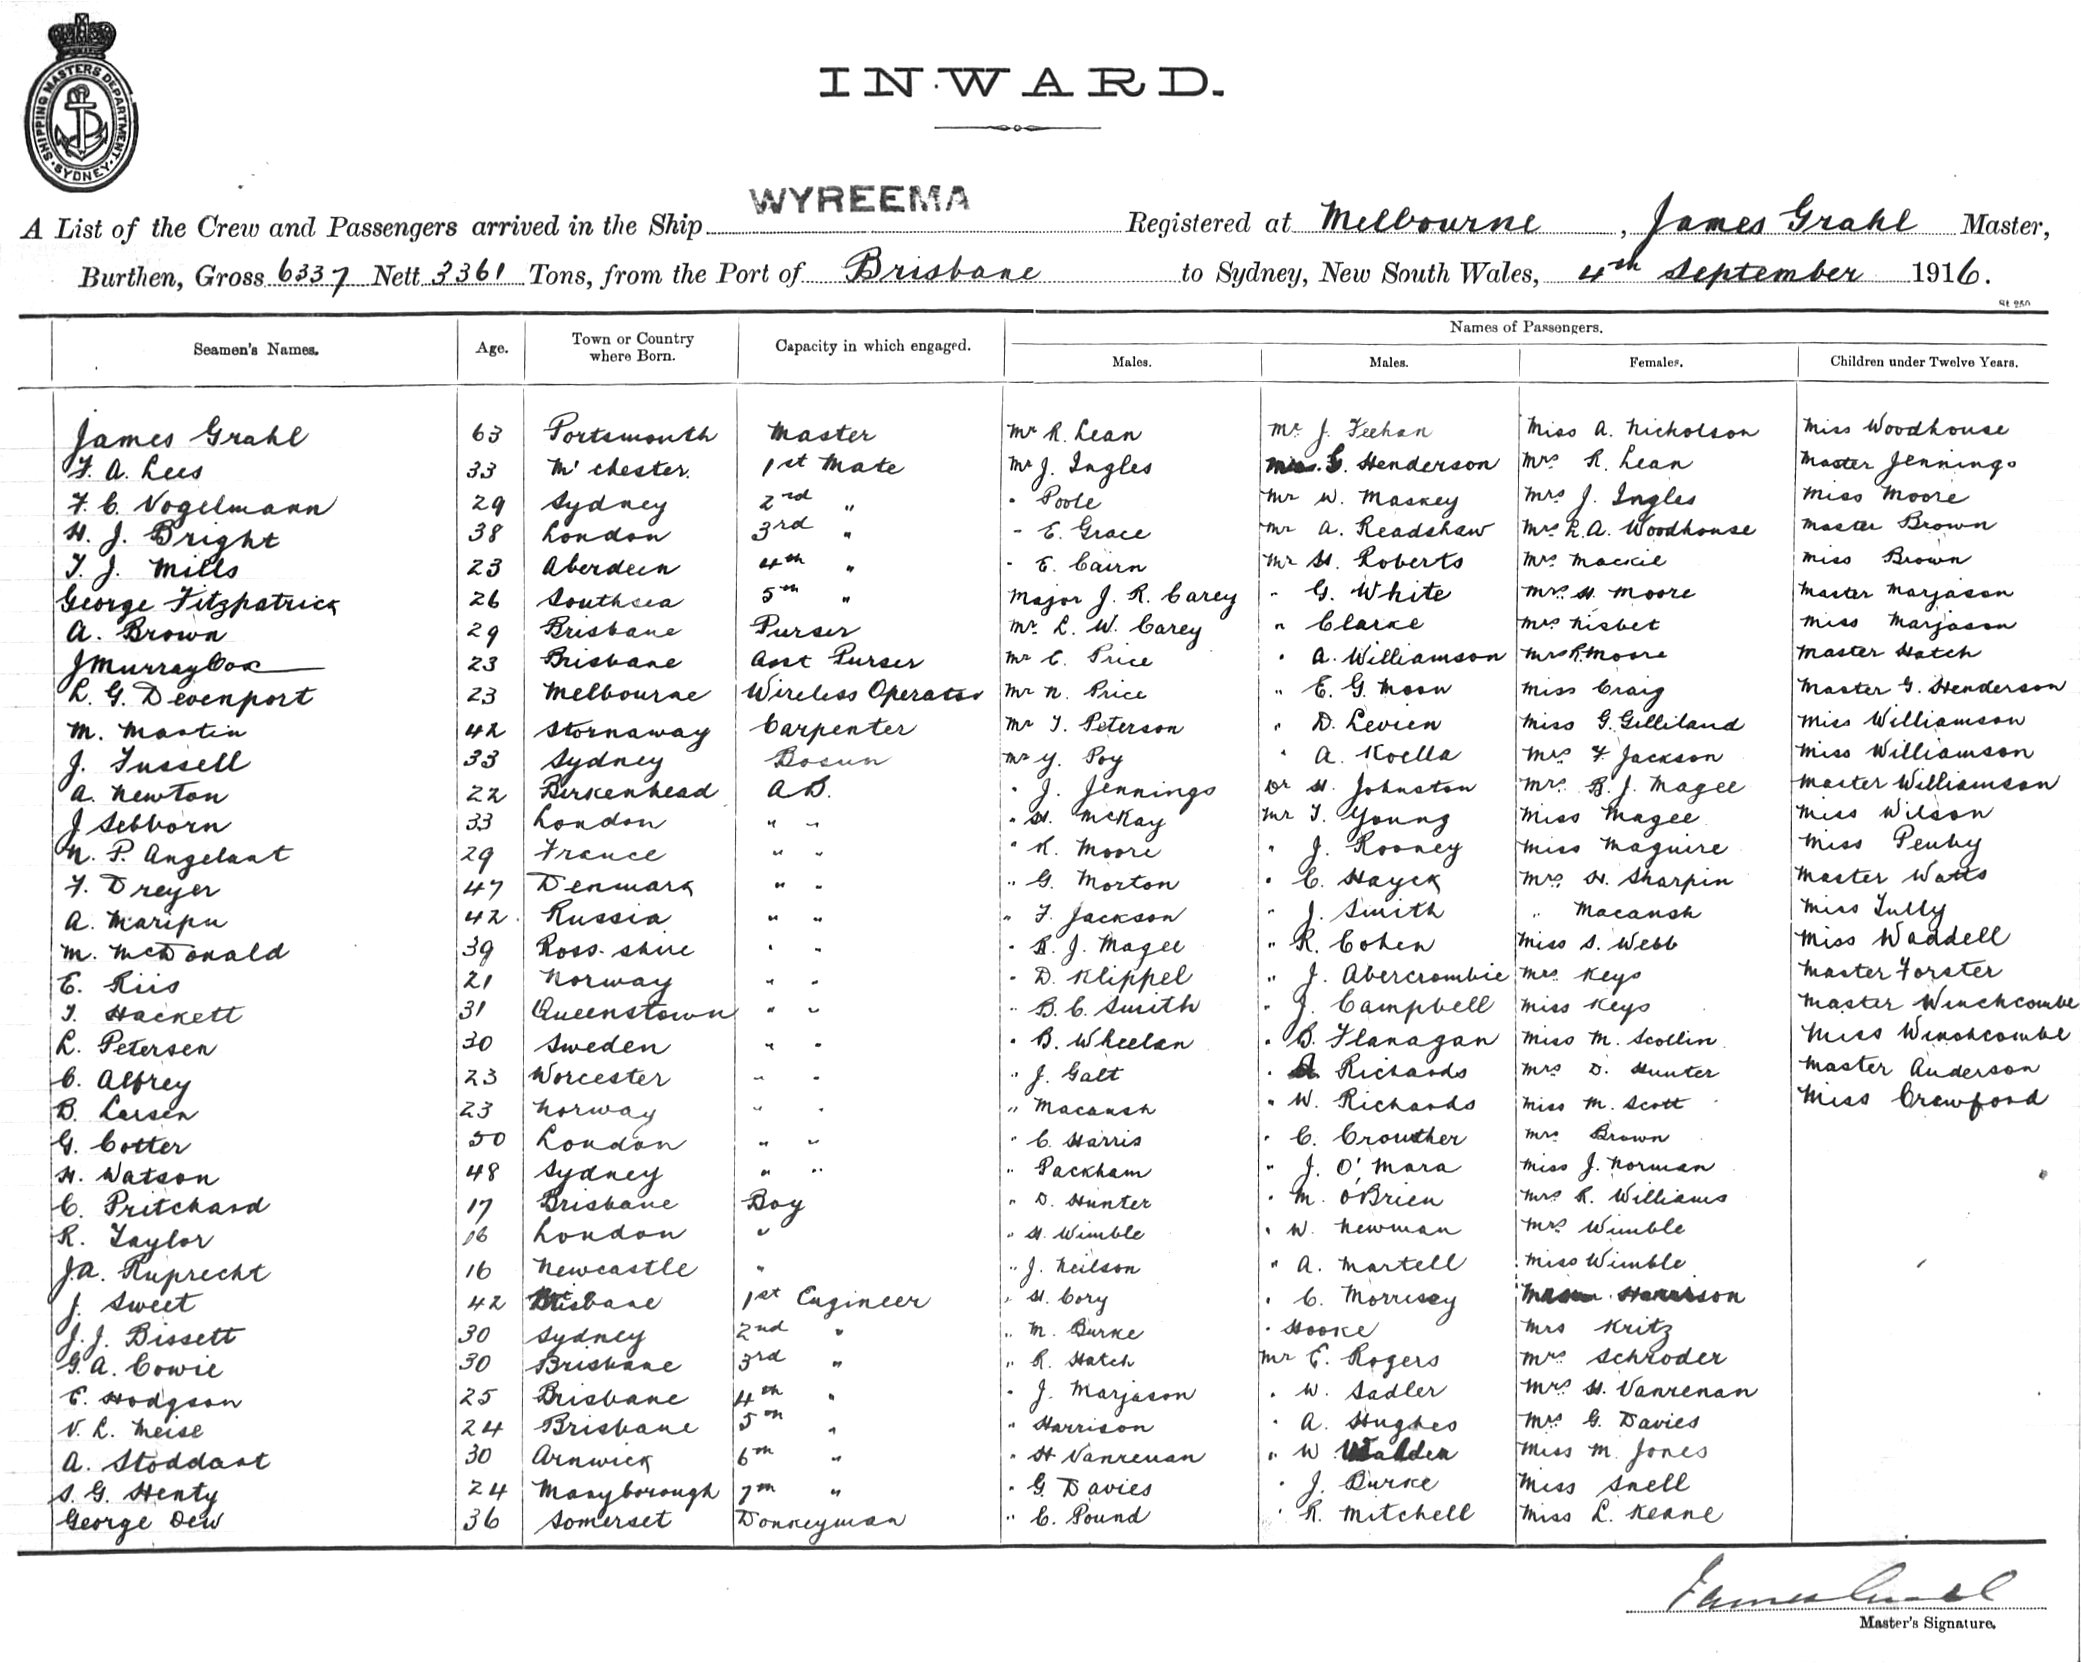 SHIPPING MASTERS DEPARTMENT · SYDNEY ·
INWARD.
WYREEMA
A List of the Crew and Passengers arrived in the Ship Registered at Melbourne, James Grahl Master,
Burthen, Gross 6337 Nett 3361 Tons, from the Port of Brisbane to Sydney, New South Wales, 4th September 1916.
St 250
Names of Passengers.
Seamen's Names. Age. Town or Country where Born. Capacity in which engaged. Males. Males. Females. Children under Twelve Years.
James Grahl 63 Portsmouth Master Mr R. Lean Mr J. Feehan Miss A. Nicholson Miss Woodhouse
F. A. Lees 33 M'chester. 1st Mate Mr J. Ingles G. Henderson Mrs R. Lean Master Jennings
F. C. Vogelmann 29 Sydney 2nd " " Poole Mr W. Maskey Mrs J. Ingles Miss Moore
H. J. Bright 38 London 3rd " " E. Grace Mr A. Readshaw Mrs L. A. Woodhouse Master Brown
T. J. Mills 23 Aberdeen 4th " " E. Cairn Mr H. Roberts Mrs Mackie Miss Brown
George Fitzpatrick 26 Southsea 5th " Major J. R. Carey " G. White Mrs H. Moore Master Marjason
A. Brown 29 Brisbane Purser Mr L. W. Carey " Clarke Mrs Nisbet Miss Marjason
J Murray Cox 23 Brisbane Asst Purser Mr C. Price " A. Williamson Mrs R. Moore Master Hatch
L. G. Devenport 23 Melbourne Wireless Operator Mr N. Price " E. G. Moon Miss Craig Master G. Henderson
M. Martin 42 Stornaway Carpenter Mr T. Peterson " D. Levien Miss G. Gilliland Miss Williamson
J. Fussell 33 Sydney Bosun Mr Y. Poy " A. Koella Mrs F. Jackson Miss Williamson
A. Newton 22 Birkenhead A B. " J. Jennings Dr H. Johnston Mrs B. J. Magee Master Williamson
J Sebborn 33 London " " " H. McKay Mr T. Young Miss Magee Miss Wilson
N. P. Angelant 29 France " " " R. Moore " J. Rooney Miss Maguire Miss Penby
F. Dreyer 47 Denmark " " " G. Morton " C. Hayck Mrs H. Sharpin Master Watts
A. Maripu 42. Russia " " " F. Jackson " J. Smith " Macansh Miss Tully
M. McDonald 39 Ross-shire " " " B. J. Magee " R. Cohen Miss S. Webb Miss Waddell
E. Riis 21 Norway " " " D. Klippel " J. Abercrombie Mrs Keys Master Forster
T. Hackett 31 Queenstown " " " B. C. Smith " J. Campbell Miss Keys Master Winchcombe
L. Petersen 30 Sweden " " " B. Wheelan " B. Flanagan Miss M. Scollin Miss Winchcombe
C. Alfrey 23 Worcester " " " J. Galt " Richards Mrs D. Hunter Master Anderson
B. Larsen 23 Norway " " " Macansh " W. Richards Miss M. Scott Miss Crawford
G. Cotter 50 London " " " C. Harris " C. Crowther Mrs Brown
H. Watson 48 Sydney " " " Packham " J. O'Mara Miss J. Norman
C. Pritchard 17 Brisbane Boy " D. Hunter " M. O'Brien Mrs R. Williams
R. Taylor 16 London " " H. Wimble " W. Newman Mrs Wimble
J.A. Ruprecht 16 Newcastle " " J. Neilson " A. Martell Miss Wimble
J. Sweet 42 Brisbane 1st Engineer " H. Cory " C. Morrisey
J. J. Bissett 30 Sydney 2nd " " M. Burke " Hooke Mrs Kritz
G. A. Cowie 30 Brisbane 3rd " " R. Hatch Mr E. Rogers Mrs Schroder
E. Hodgson 25 Brisbane 4th " " J. Marjason " W. Sadler Mrs H. Vanrenan
V. L. Meise 24 Brisbane 5th " " Harrison " A. Hughes Mrs G. Davies
A. Stoddart 30 Arnwick 6th " " H Vanrenan " W. Walden Miss M. Jones
S. G. Henty 24 Maryborough 7th " " G. Davies " J. Burke Miss Snell
George Dew 36 Somerset Donkeyman " C. Pound " R. Mitchell Miss L. Keane
James Grahl
Master's Signature.